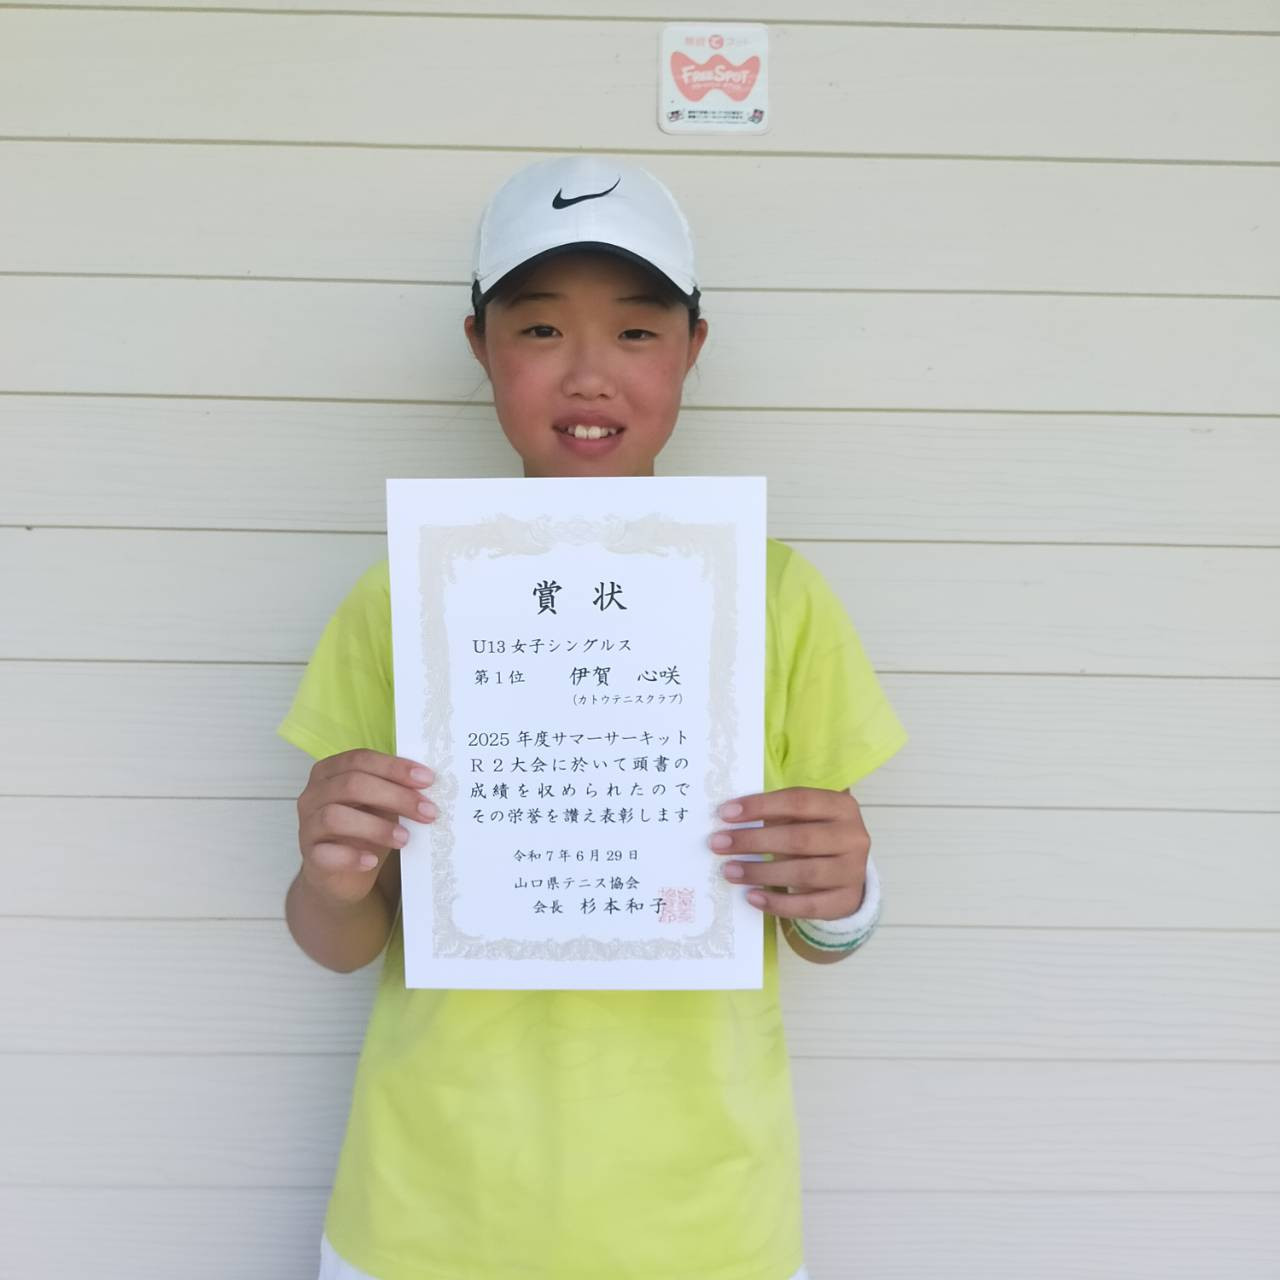 FREESPOT
賞 状
U13 女子シングルス
第1位 伊賀 心咲
(カトウテニスクラブ)
2025 年度サマーサーキット
R2大会に於いて頭書の
成績を収められたので
その栄誉を讃え表彰します
令和7年6月29日
山口県テニス協会
会長 杉本和子